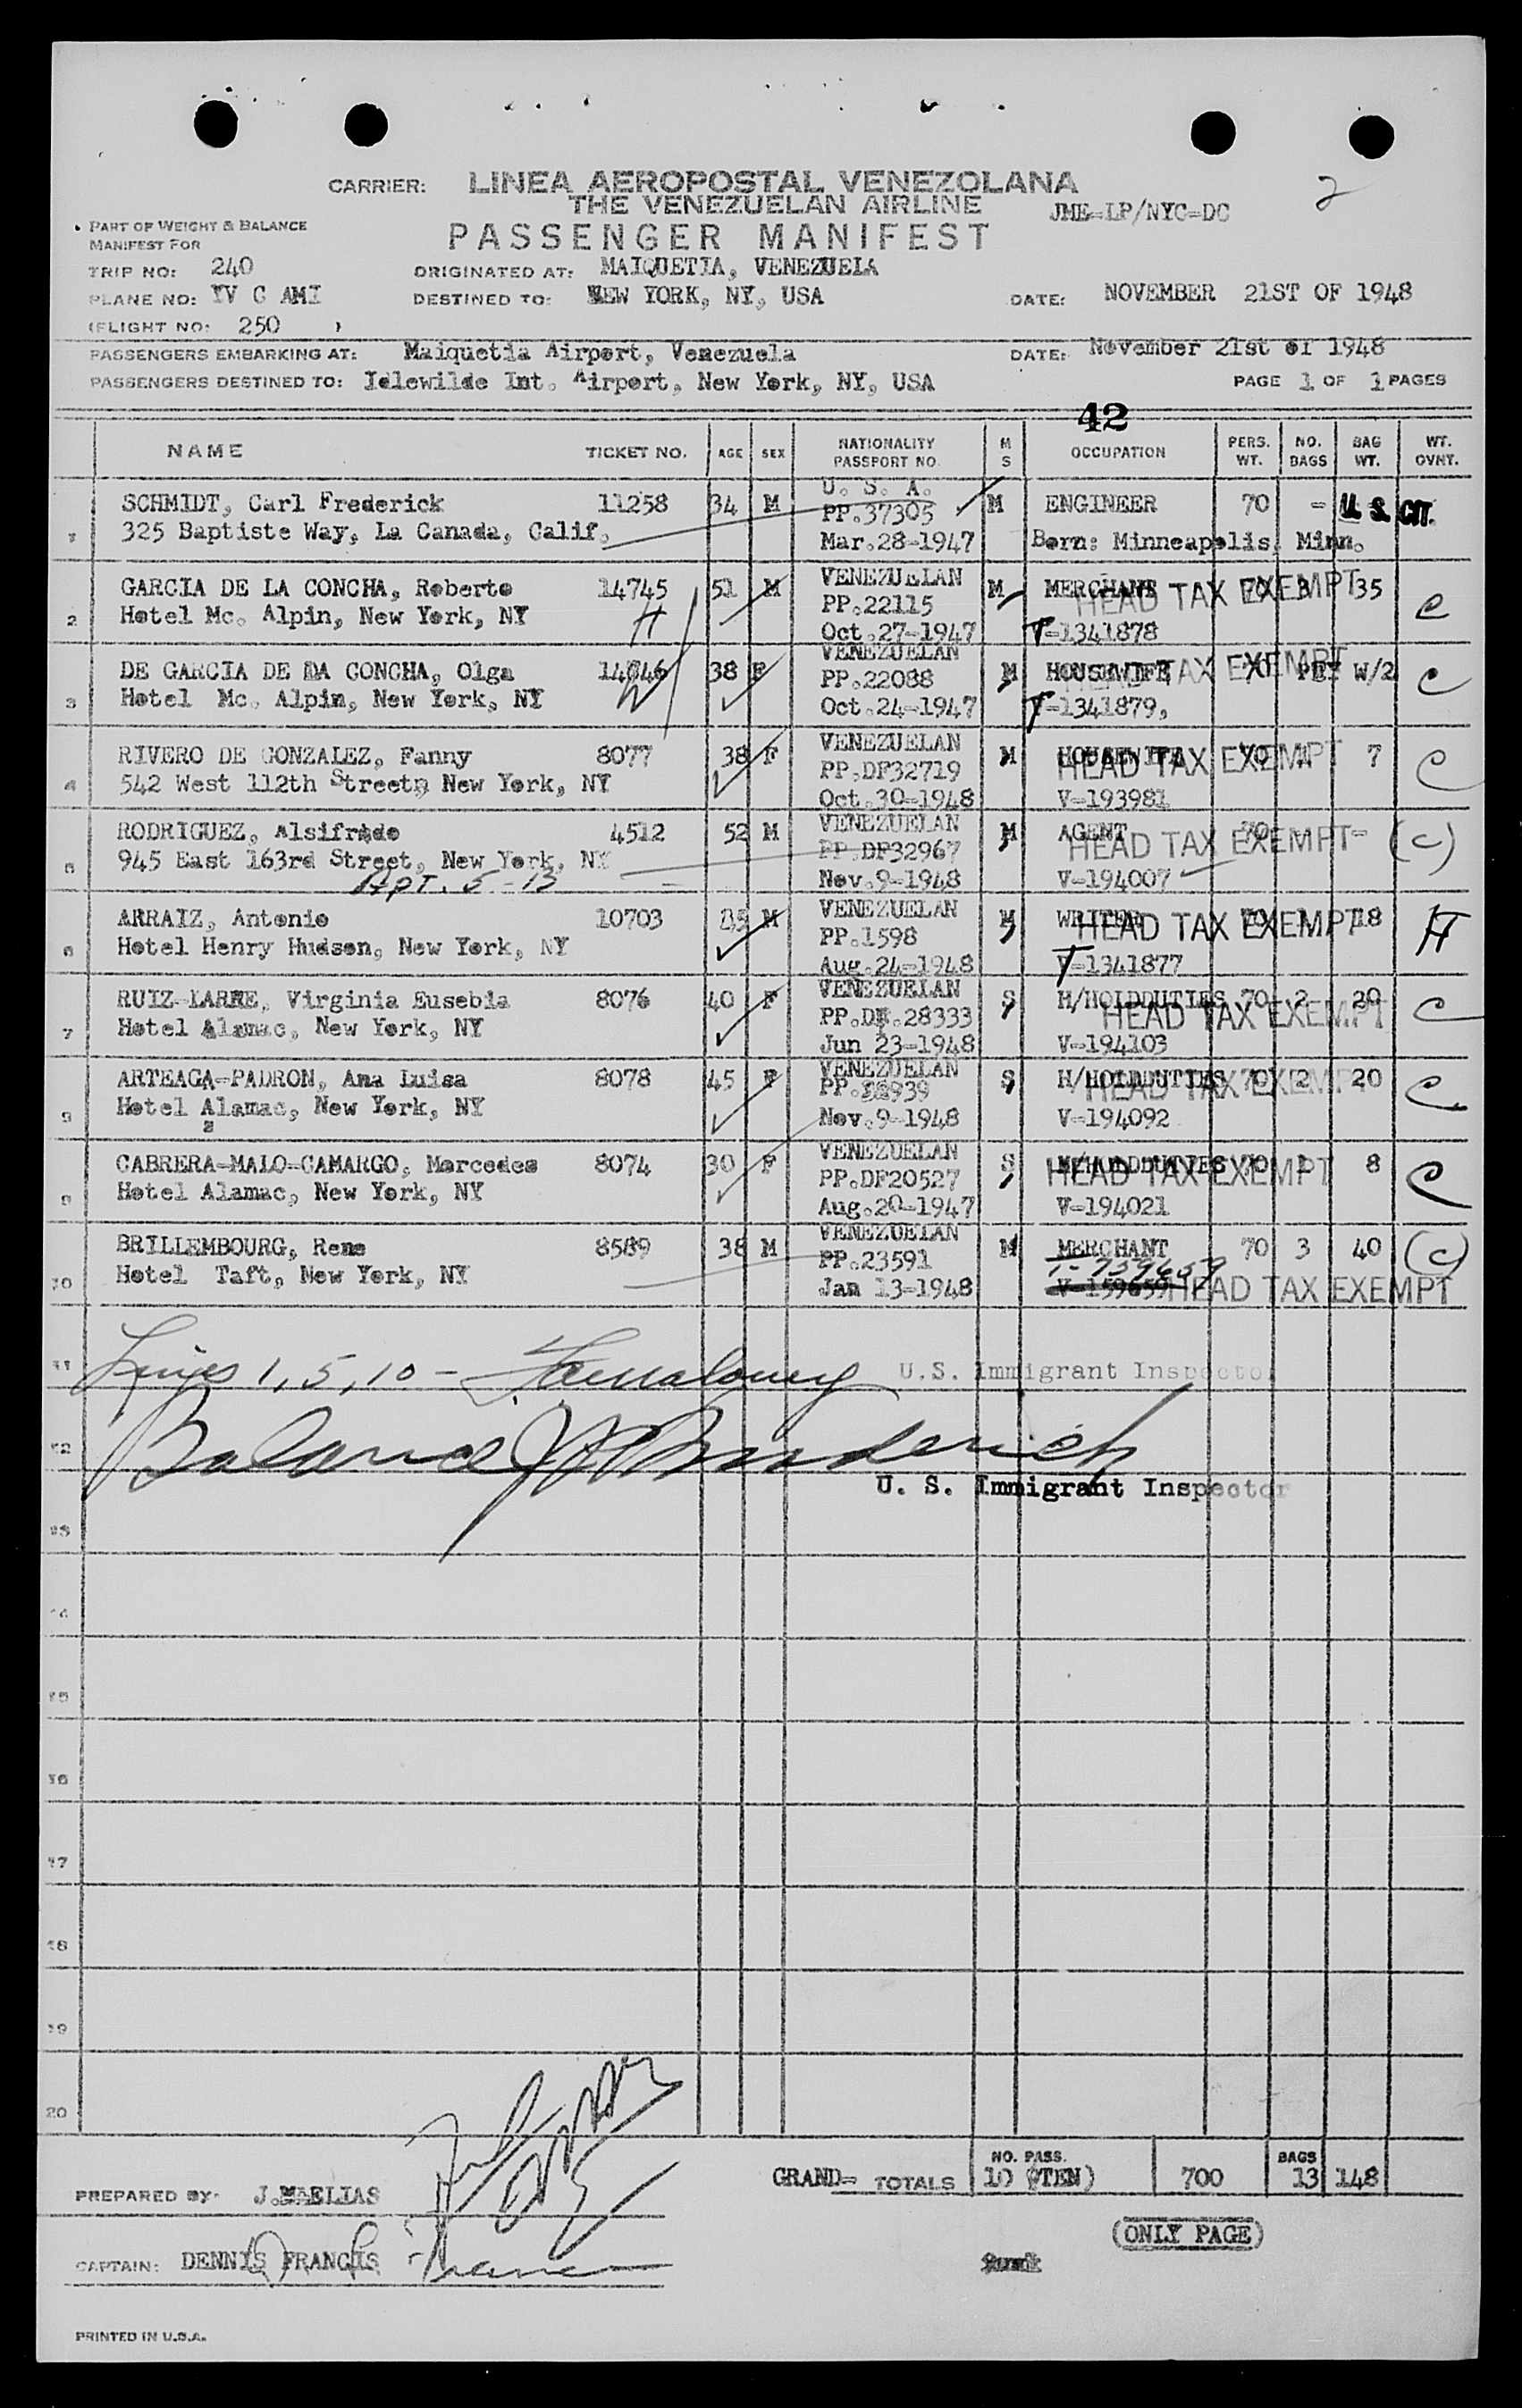 2
CARRIER: LINEA AEROPOSTAL VENEZOLANA
THE VENEZUELAN AIRLINE
JME-LP/NYC-DC
PART OF WEIGHT & BALANCE
MANIFEST FOR
PASSENGER MANIFEST
TRIP NO: 240 ORIGINATED AT: MAIQUETIA, VENEZUELA
PLANE NO: YV C AMI DESTINED TO: NEW YORK, NY, USA DATE: NOVEMBER 21ST OF 1948
(FLIGHT NO: 250 )
PASSENGERS EMBARKING AT: Maiquetia Airport, Venezuela DATE: November 21st of 1948
PASSENGERS DESTINED TO: Idlewilde Int. Airport, New York, NY, USA PAGE 1 OF 1 PAGES
42
NAME TICKET NO. AGE SEX NATIONALITY PASSPORT NO. M S OCCUPATION PERS. WT. NO. BAGS BAG WT. WT. OVHT.
U. S. A.
SCHMIDT, Carl Frederick 11258 34 M PP.37305 M ENGINEER 70 - U. S. CIT.
1 325 Baptiste Way, La Canada, Calif. Mar.28-1947 Born: Minneapolis, Minn.
VENEZUELAN
GARCIA DE LA CONCHA, Roberto 14745 51 M PP.22115 M MERCHANT 70 3 35 HEAD TAX EXEMPT C
2 Hotel Mc. Alpin, New York, NY H Oct.27-1947 T-1341878
VENEZUELAN
DE GARCIA DE LA CONCHA, Olga 14746 38 F PP.22088 M HOUSEWIFE 70 W/2 HEAD TAX EXEMPT C
3 Hotel Mc. Alpin, New York, NY W Oct.24-1947 T-1341879,
VENEZUELAN
RIVERO DE GONZALEZ, Fanny 8077 38 F PP.DF32719 M HOUSEWIFE 70 1 7 HEAD TAX EXEMPT C
4 542 West 112th Street, New York, NY Oct.30-1948 V-193981
VENEZUELAN
RODRIGUEZ, Alsifrido 4512 52 M PP.DF32967 M AGENT 70 - HEAD TAX EXEMPT (C)
5 945 East 163rd Street, New York, NY Nov.9-1948 V-194007
Apt. 5-13
VENEZUELAN
ARRAIZ, Antonio 10703 45 M PP.1598 M WRITER 70 1 18 HEAD TAX EXEMPT H
6 Hotel Henry Hudson, New York, NY Aug.24-1948 T-1341877
VENEZUELAN
RUIZ- Virginia Eusebia 8076 40 F PP.DF.28333 S H/HOLDDUTIES 70 2 20 HEAD TAX EXEMPT C
7 Hotel Alamac, New York, NY Jun 23-1948 V-194103
VENEZUELAN
ARTEAGA-PADRON, Ana Luisa 8078 45 F S H/HOLDDUTIES 70 2 20 HEAD TAX EXEMPT C
8 Hotel Alamac, New York, NY Nov.9-1948 V-194092
VENEZUELAN
CABRERA-MALO-CAMARGO, Mercedes 8074 30 F PP.DF20527 S H/HOLDDUTIES 70 1 8 HEAD TAX EXEMPT C
9 Hotel Alamac, New York, NY Aug.20-1947 V-194021
VENEZUELAN
BRILLEMBOURG, Rene 8589 38 M PP.23591 M MERCHANT 70 3 40 (C)
T-759659
10 Hotel Taft, New York, NY Jan 13-1948 V-159659 HEAD TAX EXEMPT
11 Lines 1, 5, 10 - U.S. Immigrant Inspector
12 Balance
U. S. Immigrant Inspector
13
14
15
16
17
18
19
20
GRAND- TOTALS NO. PASS. 10 (TEN) 700 BAGS 13 148
PREPARED BY: J.M.ELIAS
(ONLY PAGE)
CAPTAIN: DENNIS FRANCIS
PRINTED IN U.S.A.